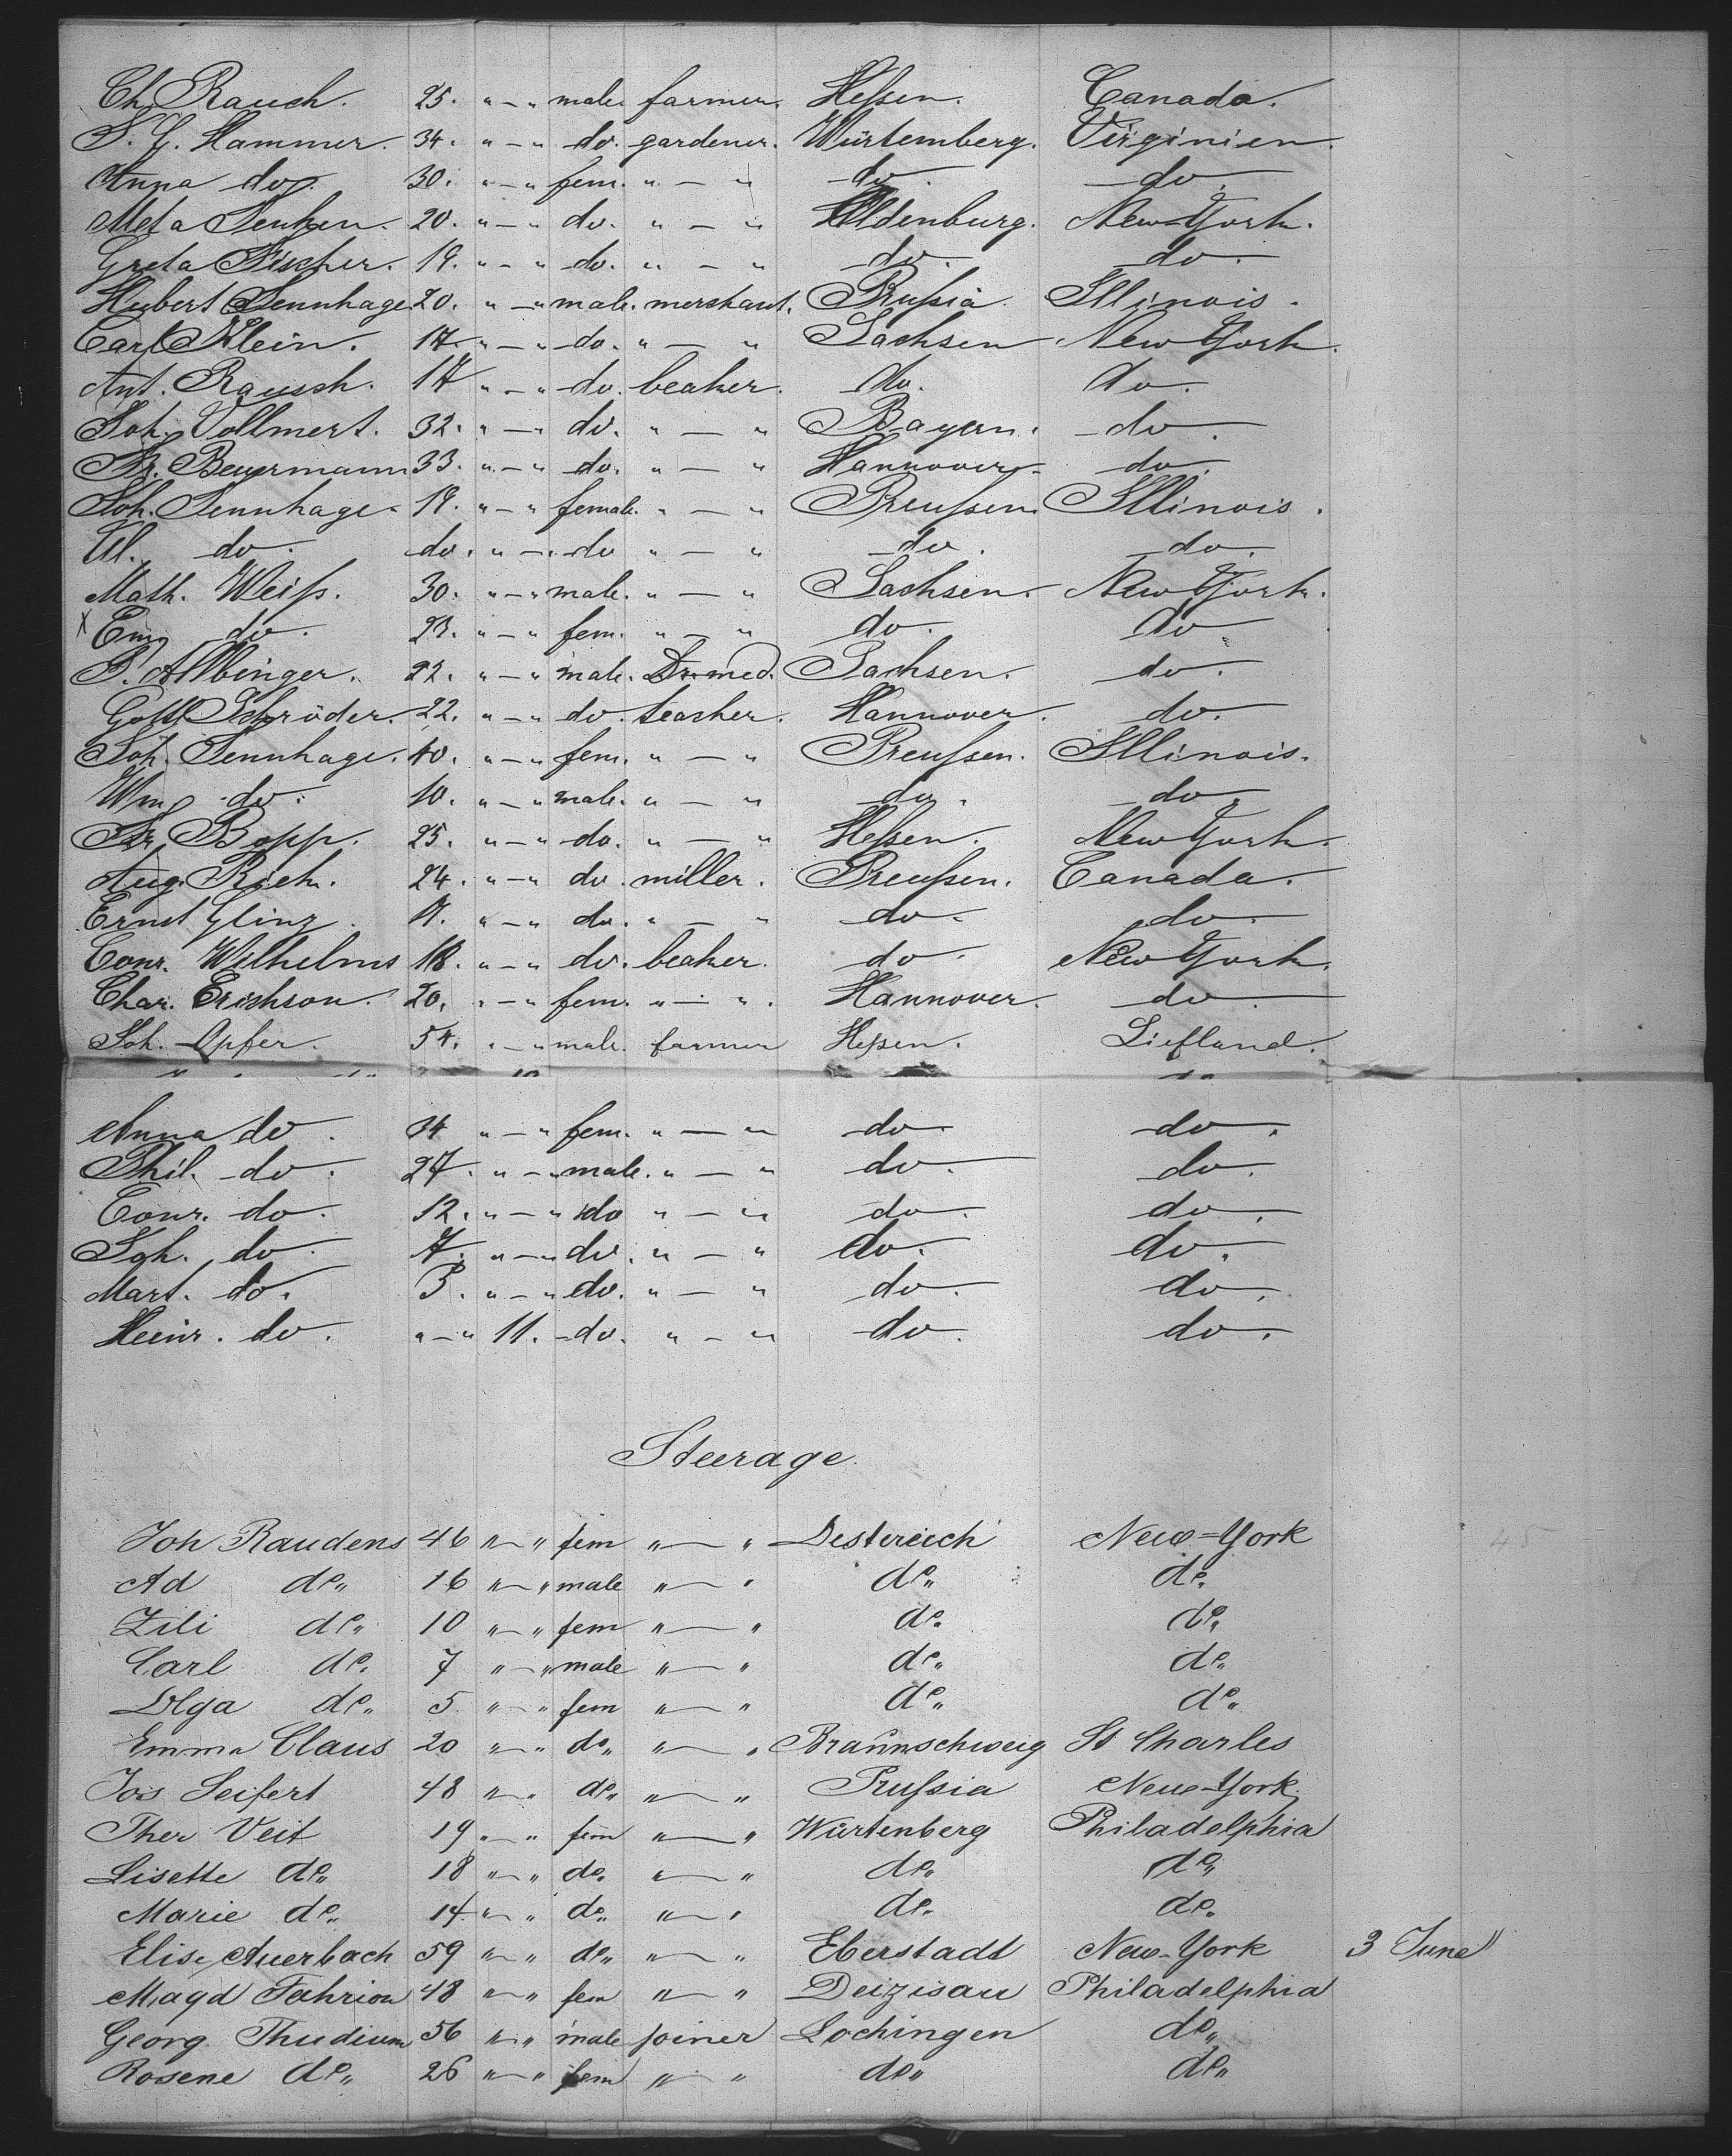 Ch. Rauch. 25. " — " male. farmer. Heßen. Canada.
S. G. Hammer. 34. " — " do. gardener. Würtemberg. Virginien.
Anna do. 30. " — " fem. " — " do. do.
Meta 20. " — " do. " — " Oldenburg. New-York.
Greta Fischer. 19. " — " do. " — " do. do.
Hubert Sennhage 20. " — " male. merchant. Prußia. Illinois.
Carl Klein. 17. " — " do. " — " Sachsen New York.
Ant. Rausch. 17 " — " do. beaker. do. do.
Joh. Vollmert. 32. " — " do. " — " Bayern. do.
Fr. Beuermann 33. " — " do. " — " Hannover. do.
Joh. Sennhage. 19. " — " female. " — " Preußen. Illinois.
El. do. do. " — " do " — " do. do.
Math. Weiß. 30. " — " male. " — " Sachsen. New York.
x Em do. 23. " — " fem. " — " do. do
22. " — " male. Dr. med. Sachsen. do.
Gottl. Schröder. 22. " — " do. teacher. Hannover. do.
Joh. Sennhage. 40. " — " fem. " — " Preußen. Illinois.
Wm do. 10. " — " male. " — " do. do.
Fr. Bopp. 25. " — " do. " — " Heßen. New York.
Aug. 24. " — " do. miller. Preußen. Canada.
Ernst Glinz. " — " do. " — " do. do.
Conr. Wilhelms 18. " — " do. beaker. do. New York.
Char. Erichson. 20. " — " fem. " — " Hannover. do.
Joh. Opfer. 54. " — " male. farmer Heßen. Liefland.
Anna do. " — " fem. " — " do do.
Phil. do. 27. " — " male. " — " do. do.
Conr. do. 12. " — " do " — " do. do.
Joh. do. 7. " — " do. " — " do. do.
Mart. do. 3. " — " do. " — " do. do.
Heinr. do. " — " 11. do. " — " do. do.
Steerage.
Joh Raudens 46 " — " fem " — " Oestereich New-York 45
Ad do " 16 " — " male " — " do " do "
Zili do " 10 " — " fem " — " do " do "
Carl do " 7 " — " male " — " do " do "
Olga do " 5 " — " fem " — " do " do "
Emma Claus 20 " — " do " " — " Braunschweig St Charles
Jos Seifert 48 " — " do " " — " Prußia New-York
Ther Veit 19 " — " fem " — " Würtenberg Philadelphia
Lisette do " 18 " — " do " " — " do " do "
Marie do " 14 " — " do " " — " do " do "
Elise Auerbach 59 " — " do " " — " Eberstadt New-York 3 June "
Magd Fahrion 48 " — " fem " — " Deizisau Philadelphia
Georg Thudium 56 " — " male joiner Lochingen do "
Rosene do " 26 " — " fem " — " do " do "